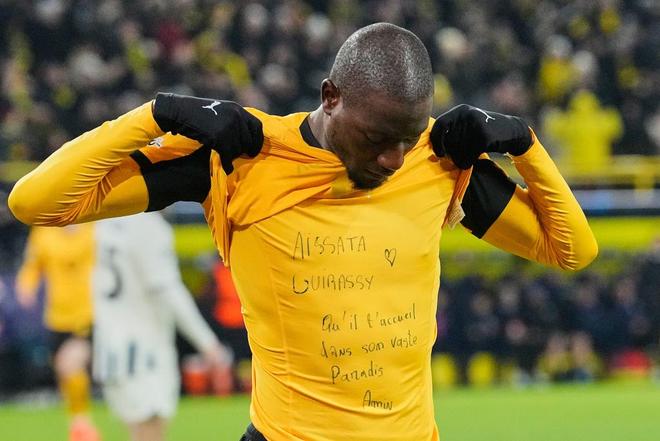 Aïssata ♡
Guirassy
Qu'il t'accueil
dans son vaste
Paradis
Amin
5